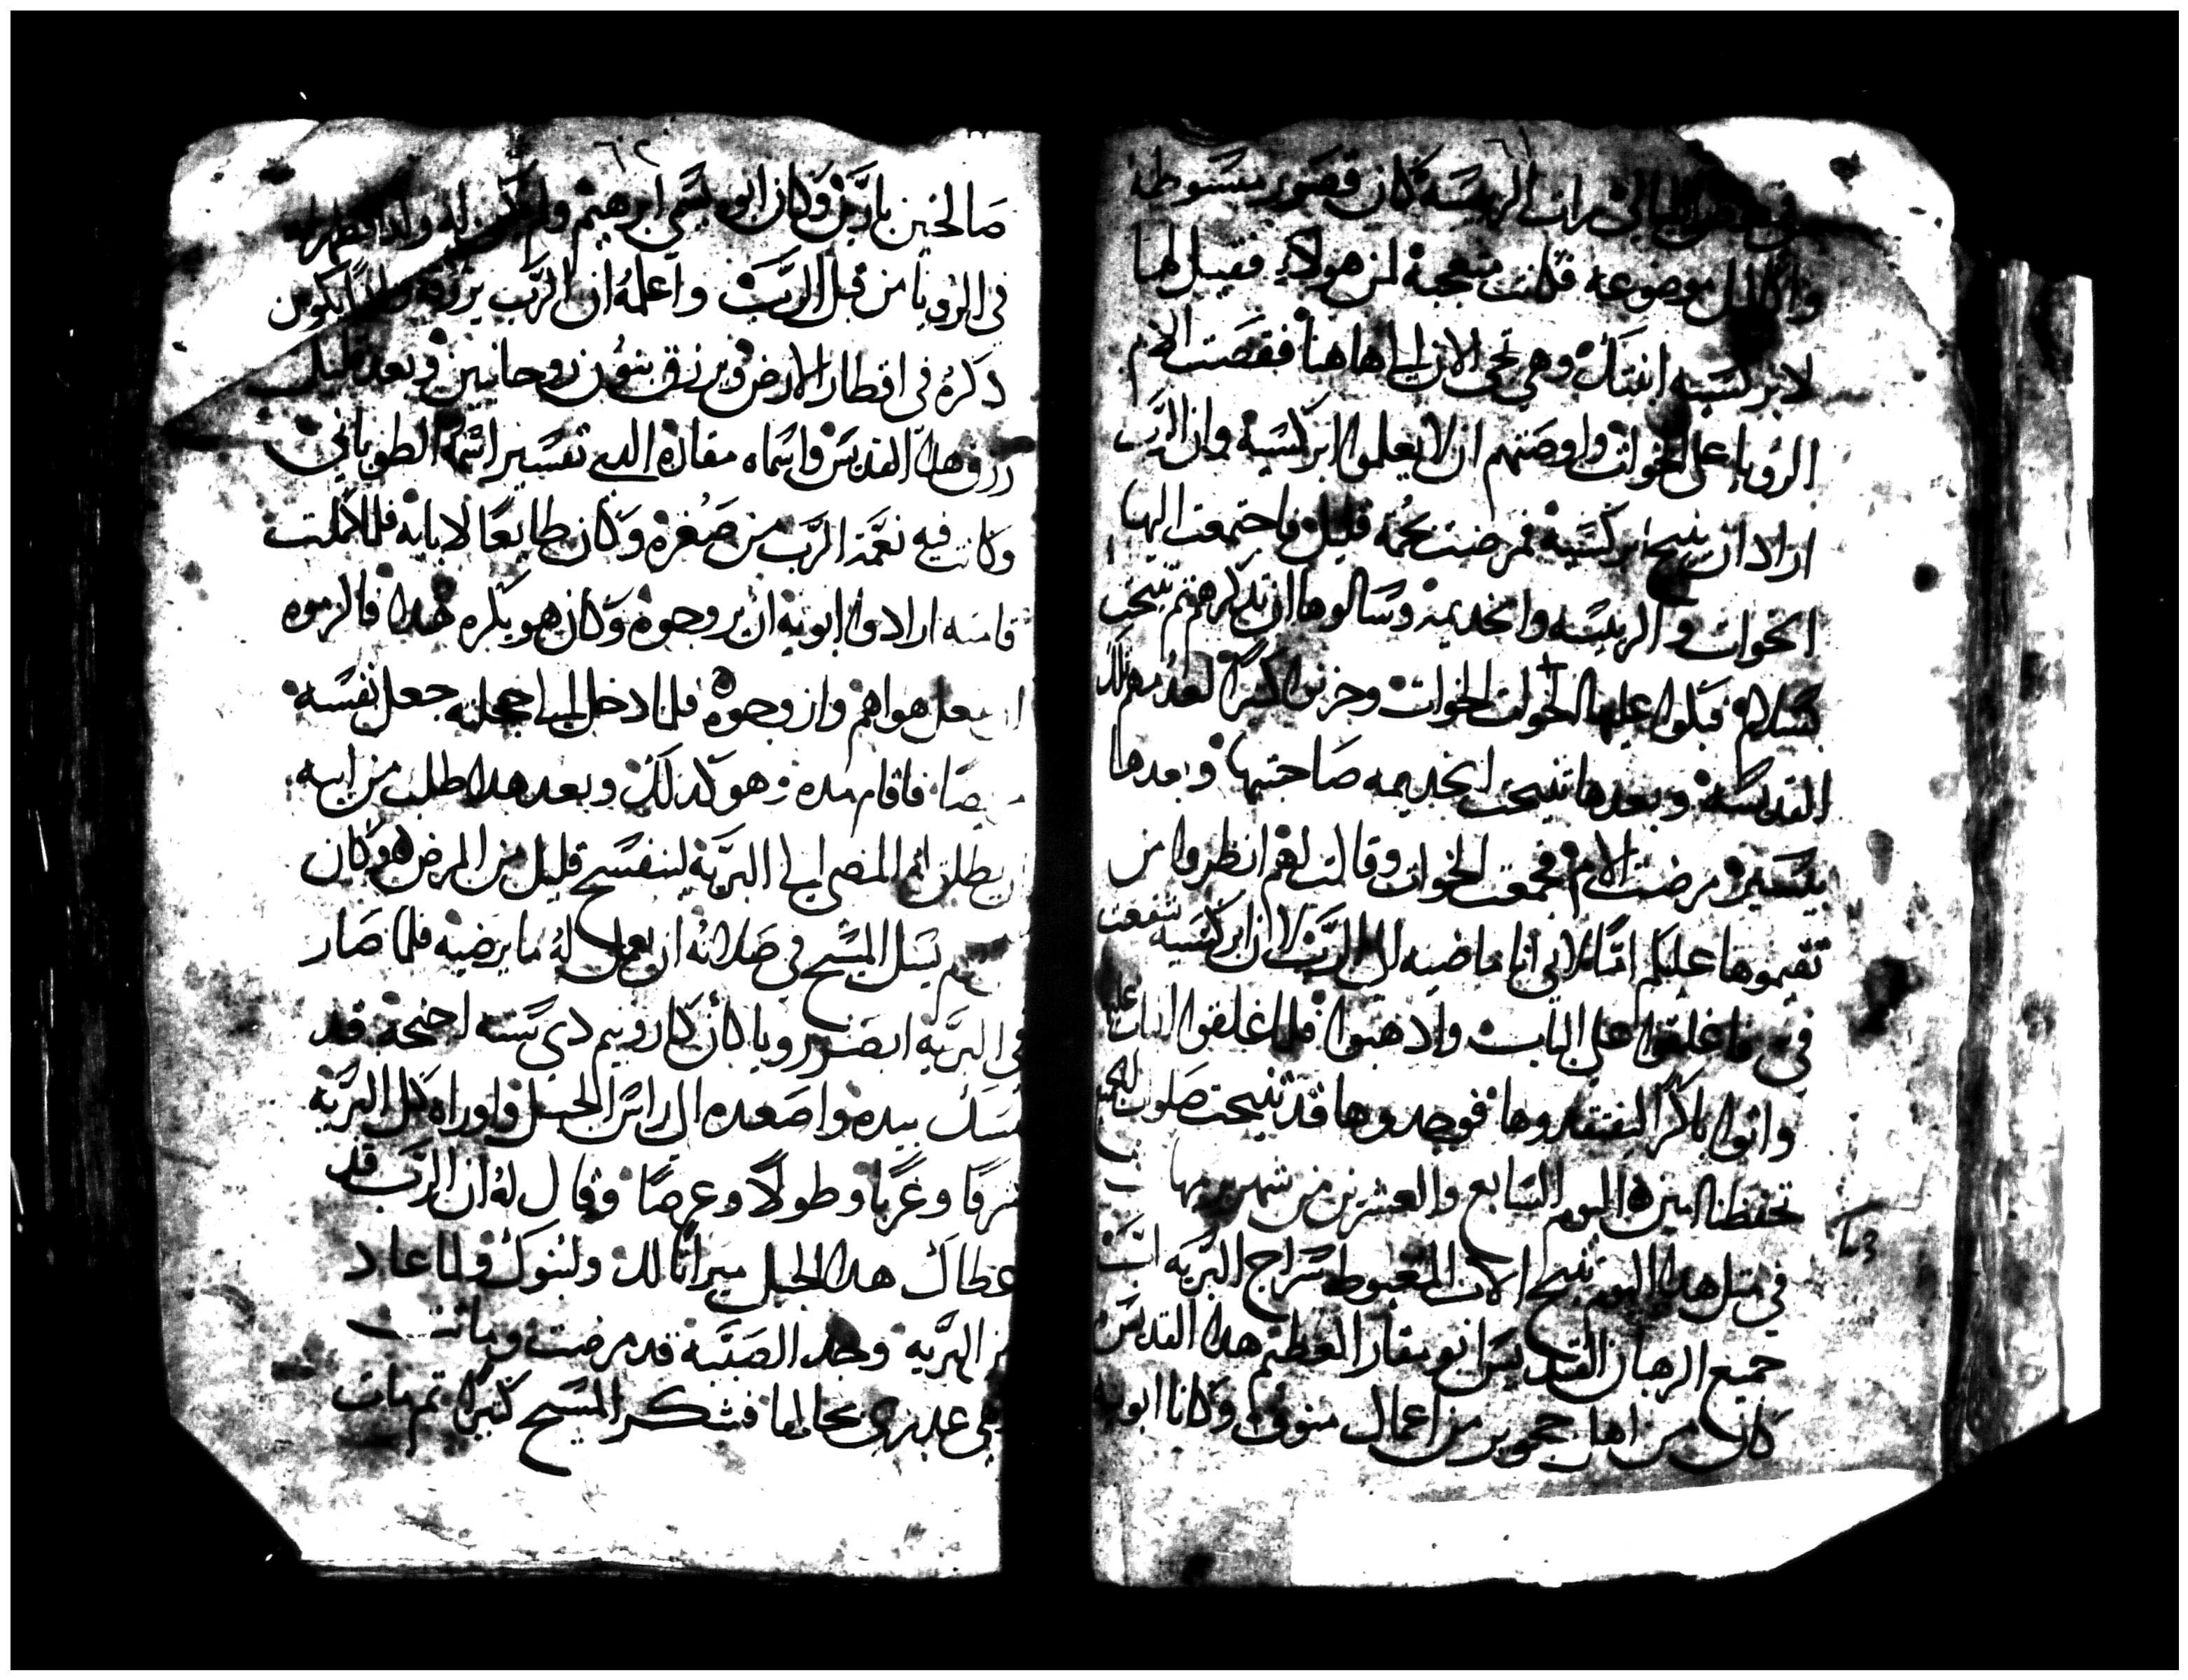 ٦١
في بعض الليالي رات الرييسه كان قصور مبسوطه
واكاليل موضوعه فكانت متعجبة لمن هولاء فقيل لها
لابركسيه ابنتك وهي تجي الان الي هاهنا فقصت الام
الرويا على الخوات واوصتهم ان لا يعلموا ابركسيه وان الرب
اراد ان ينيح ابركسيه فمرضت بحمه قليل فاجتمعت اليها
الخوات والرييسه والخديمه وسالوها ان تذكرهم ثم تنيحت
بسلام فبكوا عليها الخوات وحزنوا كثيرا لعدمهم تلك
القديسه وبعدها تنيحت الخديمه صاحبتها وبعدها
بيسير مرضت الام فجمعت الخوات وقالت لهم انظروا من
تقيموها عليكم امّا لاني انا ماضيه الى الرب لان ابركسيه شفعت
في فاغلقوا علي الباب واذهبوا فلما اغلقوا الباب عليها
واتوا باكرا ليفتقدوها فوجدوها قد تنيحت صلوات الجميع
تحفظنا امين اليوم السابع والعشرين من شهر برمهات
في مثل هذا اليوم تنيح الاب المغبوط سراج البريه اب
جميع الرهبان القديس ابو مقار العظيم هذا القديس
كان من اهل ججوير من اعمال منوف وكانا ابويه
٦٢
صالحين بارين وكان ابوه يسمي ابرهيم ولم يكن له ولد فظهر له
في الرويا من قبل الرب واعلمه ان الرب يرزقه ولدا يكون
ذكره في اقطار الارض ويرزق بنون روحانيين وبعد قليل
رزق هذا القديس واسماه مقاره الدي تفسير اسمه الطوباني
وكانت فيه نعمة الرب من صغره وكان طايعا لابايه فلما كملت
قامته ارادوا ابويه ان يزوجوه وكان هو يكره هذا فالزموه
ان يفعل هواهم وازوجوه فلما دخل الي احجله جعل نفسه
مريضا فاقام مده وهو كذلك وبعد هذا طلب من ابيه
ان يطلق له المضي الي البريه لينفسح قليل من المرض وكان
يسل المسيح في صلاته ان يعمل له ما يرضيه فلما صار
في البريه ابصر رويا كان كاروبيم ذي سته اجنحة قد
مسك بيده واصعده الي راس الجبل واوراه كل البريه
شرقا وغربا وطولا وعرضا وقال له ان الرب قد
اعطاك هذا الجبل ميراثا لك ولبنوك ولما عاد
من البريه وجد الصبيه قد مرضت وماتت
وهي عدري بحالها فشكر المسيح كثيرا ثم مات